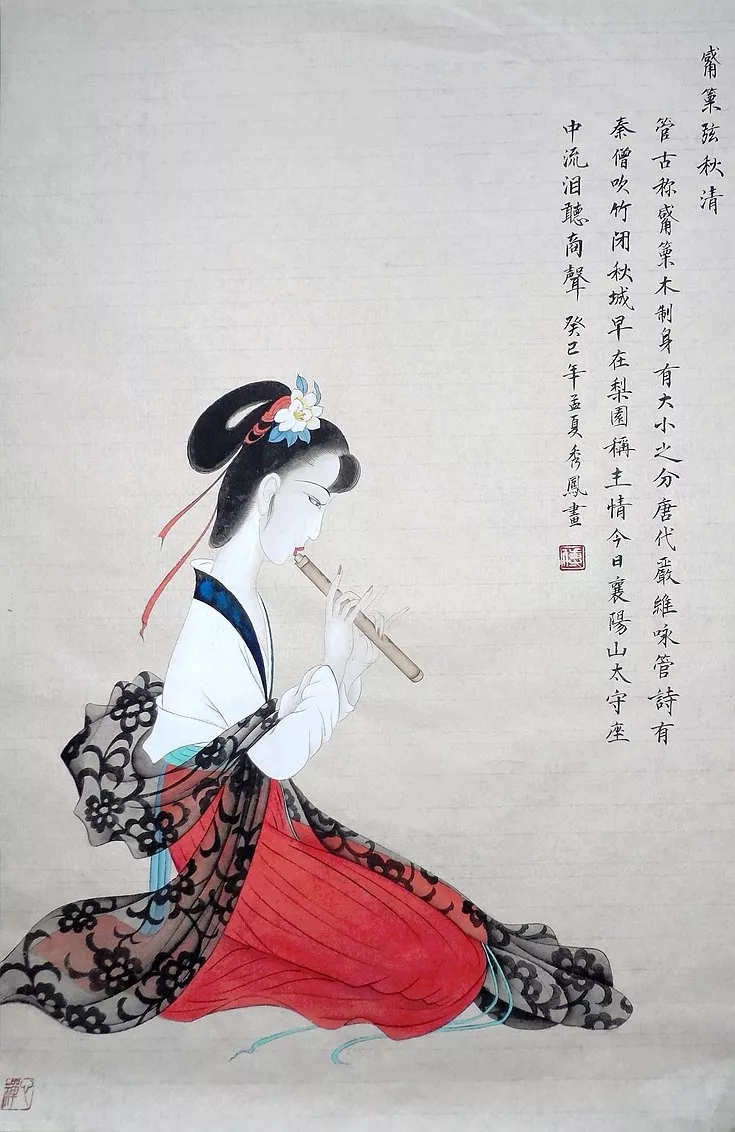 觱篥弦秋清
管古称觱篥木制身有大小之分唐代嚴維咏管詩有
秦僧吹竹闭秋城早在梨園稱主情今日襄陽山太守座
中流泪聽商聲 癸巳年孟夏秀鳳畫